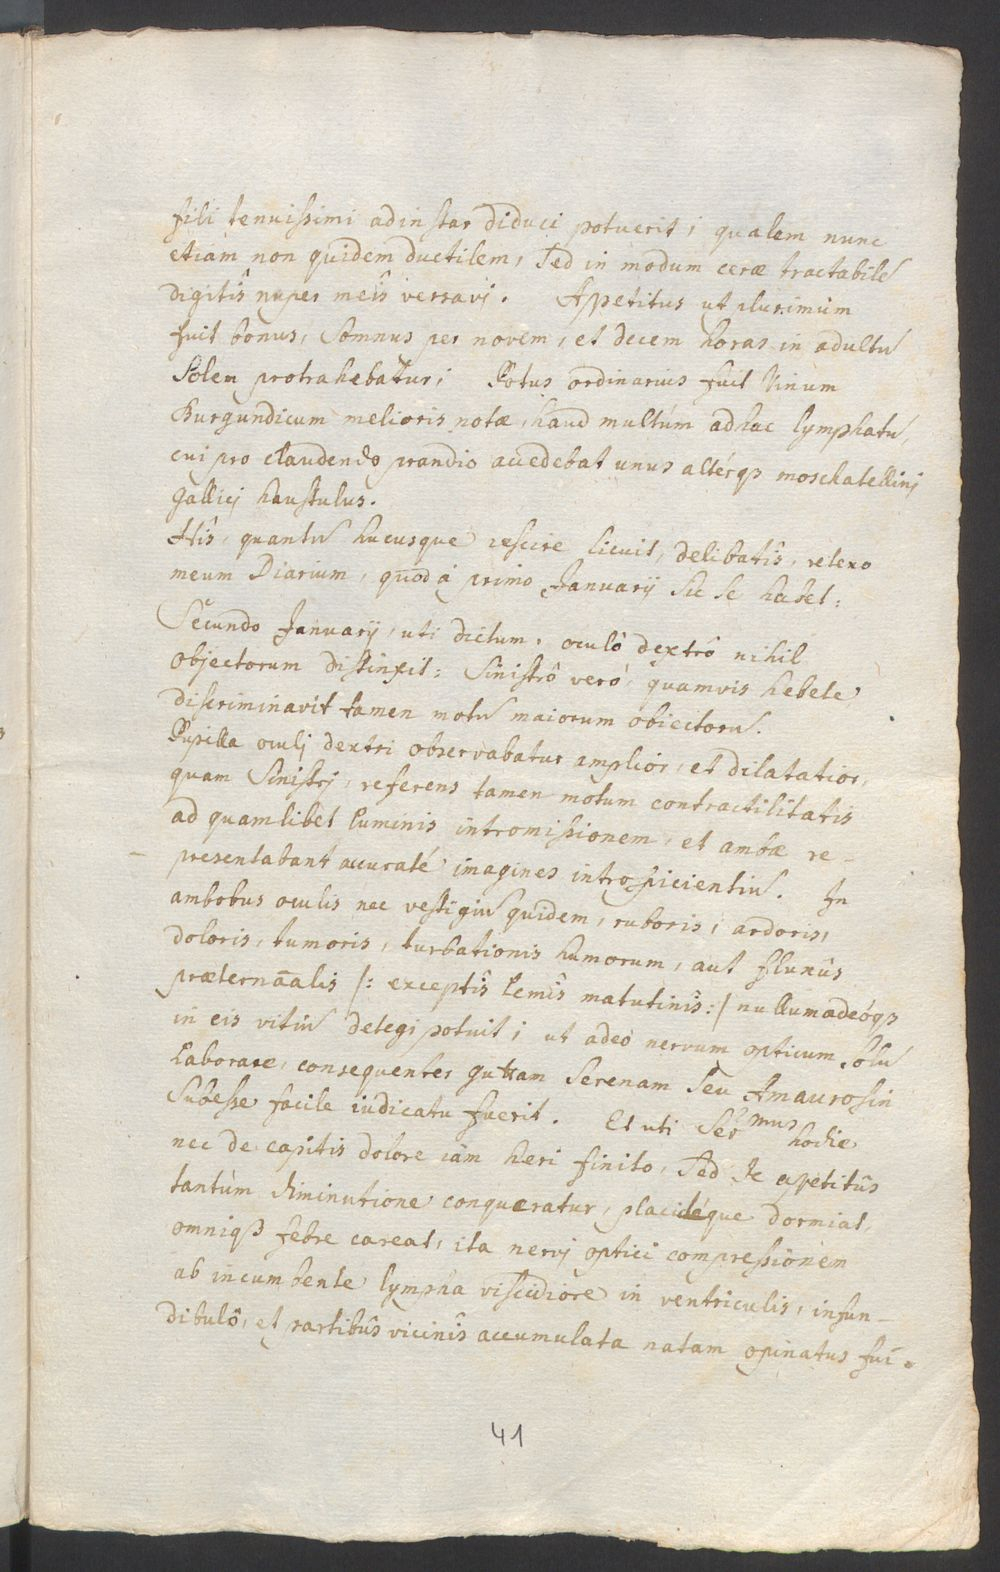 fili tenuissimi ad instar diduci potuerit; qualem nunc
etiam non quidem ductilem, sed in modum ceræ tractabilē
digitîs nuper meîs versavj. Appetitus ut plurimùm
fuit bonus, Somnus per novem, et decem horas in adultū
Solem protrahebatur; Potus ordinarius fuit Vinum
Burgundicum melioris notæ, haud multùm adhac lymphatū,
cui pro claudendo prandio accedebat unus altérqȝ moschatellinj
Gallicj haustulus.
Hîs, quantū hucusque rescire licuit, delibatîs, retexo
meum Diarium, quod à primo Januarij sic se habet:
Secundo Januarij, uti dictum, oculô dextrô nihil
objectorum distinxit: Sinistrô verò, quamvis hebete,
discriminavit tamen motū maiorum obiectorū.
Pupilla oculj dextri observabatur amplior, et dilatatior,
quam Sinistrj, referens tamen motum contractilitatis
ad quamlibet luminis intromissionem, et ambæ re-
presentabant accuratè imagines introspicientiū. In
ambobus oculis nec vestigiū quidem, ruboris, ardoris,
doloris, tumoris, turbationis humorum, aut fluxûs
præternāalis /: exceptîs lemîs matutinîs :/ nullum adeóqȝ
in eis vitiū detegi potuit; ut adeò nervum opticum solū
laborare, consequenter guttam serenam seu Amaurosin
subesse facile iudicatu fuerit. Et uti Ser mus hodie
nec de capitis dolore iàm heri finito, sed de apetitûs
tantùm diminutione conquæratur, placidéque dormiat,
omniqȝ febre careat, ita nervj optici compressionem
ab incumbente lympha viscidiore in ventriculis, infun-
dibulô, et partibûs vicinîs accumulata natam opinatus fui.
41